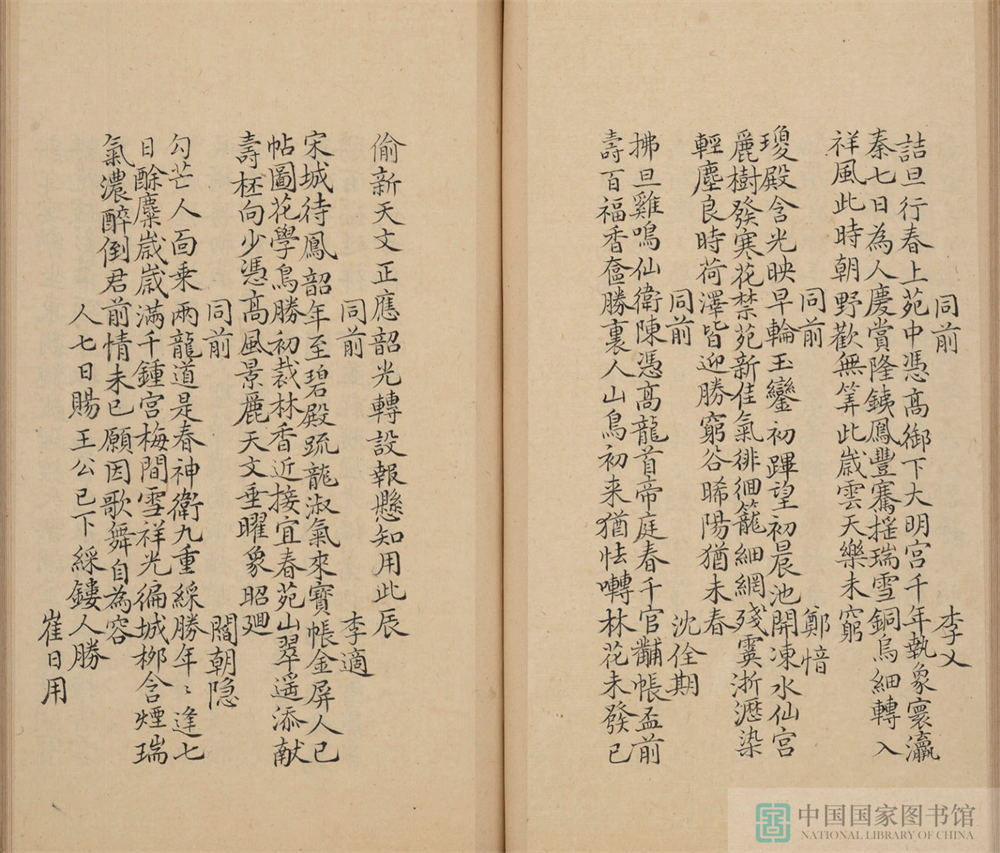 同前 李乂
詰旦行春上苑中憑高御下大明宮千年執象寰瀛
泰七日為人慶賞隆銕鳳豐騫摇瑞雪銅烏細轉入
祥風此時朝野歡無筭此歲雲天樂未窮
同前 鄭愔
瓊殿含光映早輪玉鑾初蹕望初晨池開凍水仙宮
麗樹發寒花禁苑新佳氣徘徊籠細網殘霙淅瀝染
輕塵良時荷澤皆迎勝窮谷晞陽猶未春
同前 沈佺期
拂旦雞鳴仙衛陳憑高龍首帝庭春千官黼帳盃前
壽百福香奩勝裏人山鳥初来猶怯囀林花未發已
偷新天文正應韶光轉設報懸知用此辰
同前 李適
宋城待鳳韶年至碧殿䟽龍淑氣來寶帳金屏人已
帖圖花學鳥勝初裁林香近接宜春苑山翠遥添献
壽柸向少憑高風景麗天文垂曜象昭廻
同前 閻朝隐
勾芒人面乗兩龍道是春神衛九重綵勝年〻逢七
日酴縻歲歲滿千鍾宮梅間雪祥光徧城栁含煙瑞
氣濃醉倒君前情未已願因歌舞自為容
人七日賜王公已下綵鏤人勝
崔日用
中国国家图书馆
NATIONAL LIBRARY OF CHINA